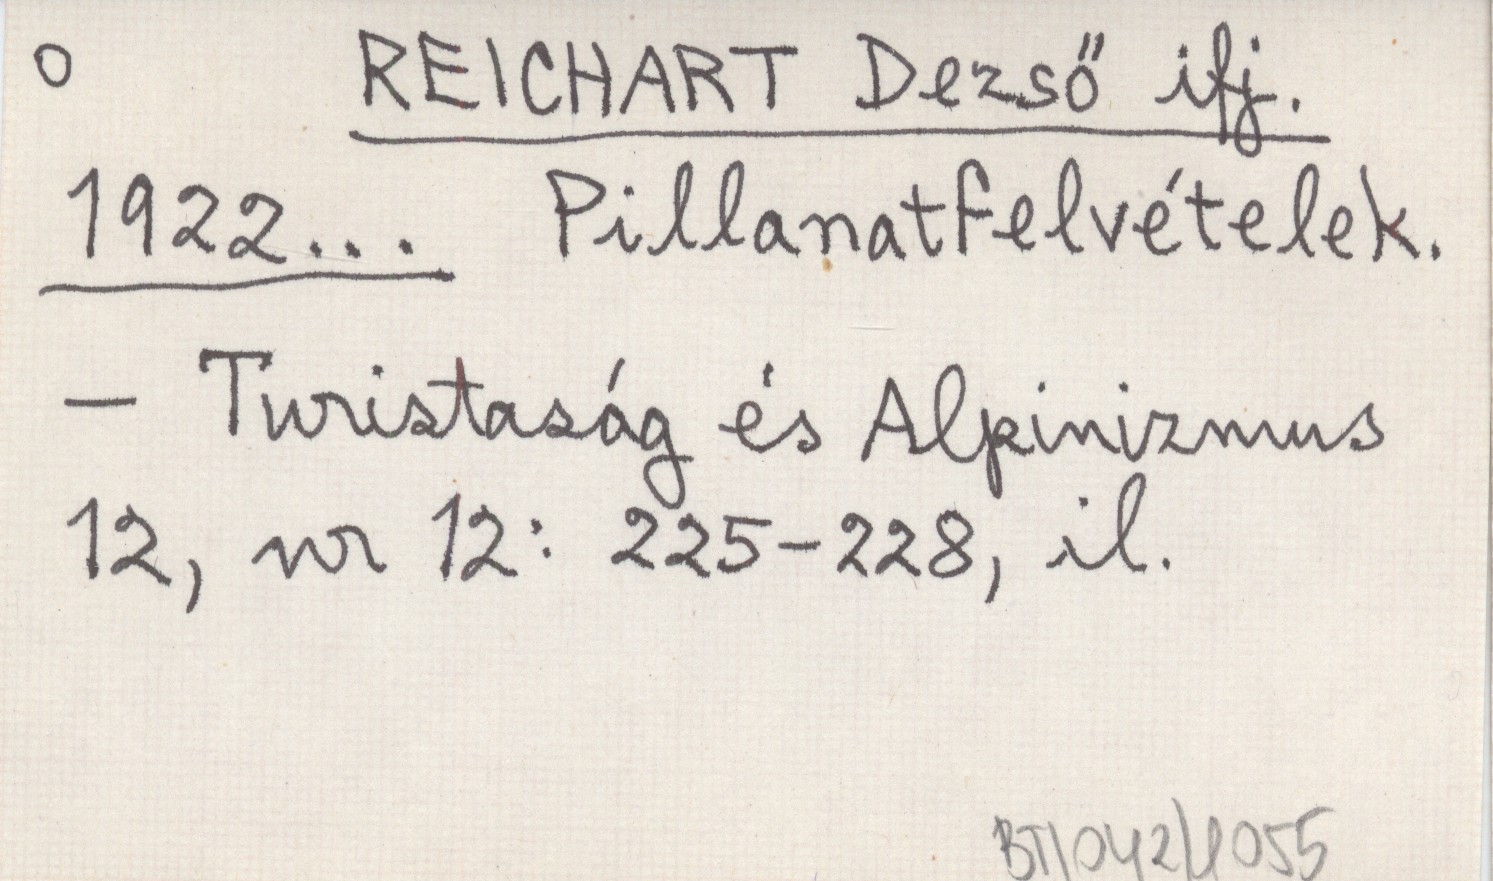 o REICHART Dezső ifj.
1922... Pillanatfelvételek.
– Turistaság és Alpinizmus
12, nr 12: 225–228, il.
BT/042/1055